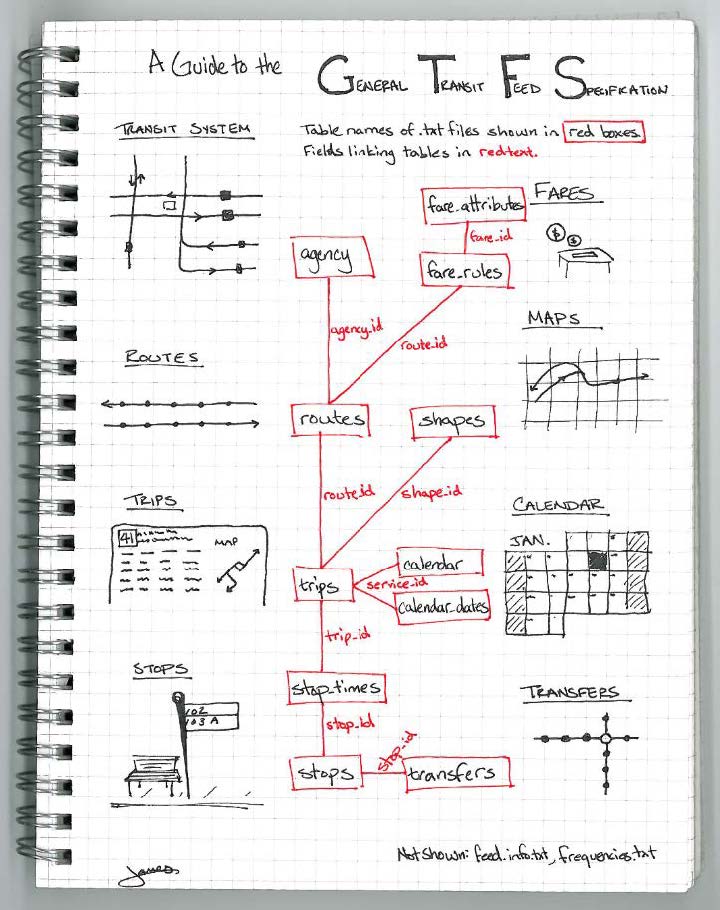 A Guide to the GENERAL TRANSIT FEED SPECIFICATION
TRANSIT SYSTEM
Table names of .txt files shown in red boxes.
Fields linking tables in red text.
FARES
fare_attributes
fare_id
agency
fare_rules
$
$
MAPS
agency_id
route_id
ROUTES
routes
shapes
route_id
shape_id
TRIPS
41
MAP
CALENDAR
JAN.
calendar
trips
service_id
calendar_dates
trip_id
STOPS
stop_times
TRANSFERS
102
103 A
stop_id
stop_id
stops
transfers
Not Shown: feed_info.txt, frequencies.txt
James